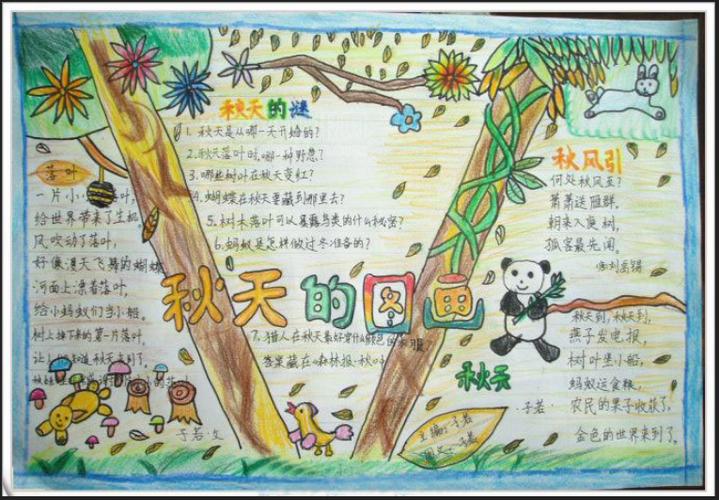 秋天的谜
1. 秋天是从哪一天开始的?
2. 秋天落叶时,哪一种野
3. 哪些树叶在秋天变红?
4. 蝴蝶在秋天要藏到那里去?
5. 树木落叶可以暴露鸟类的什么秘密?
6. 蚂蚁是怎样做过冬准备的?
7. 猎人在秋天最好穿什么颜色的衣服
答案藏在《森林报·秋》
落叶
一片小 叶,
给世界带来了生机,
风吹动了落叶,
好像漫天飞舞的蝴蝶
河面上漂着落叶,
给小蚂蚁们当小船。
树上掉下来的第一片落叶
让 知道秋天来到了。
子若·文
秋天的图画
秋风引
何处秋风至?
萧萧送雁群。
朝来入庭树,
孤客最先闻。
唐刘禹锡
秋天
秋天到,秋天到,
燕子发电报,
树叶坐小船,
蚂蚁运食粮,
农民的果子收获了,
金色的世界来到了。
·子若·
主编:子若
图文:子若